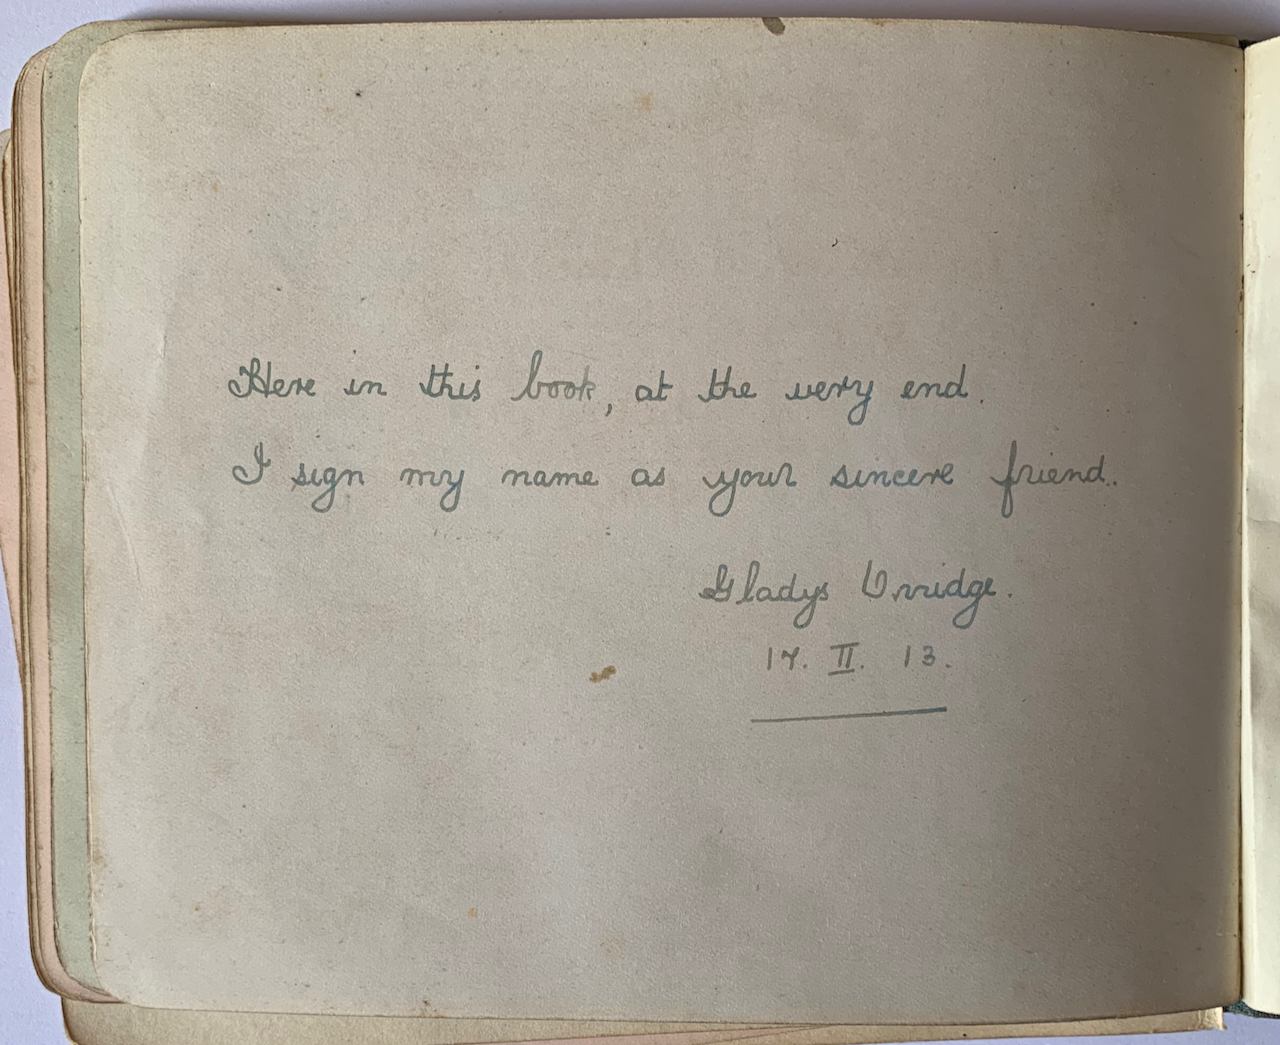 Here in this book, at the very end.
I sign my name as your sincere friend.
Gladys Urridge.
17. II. 13.